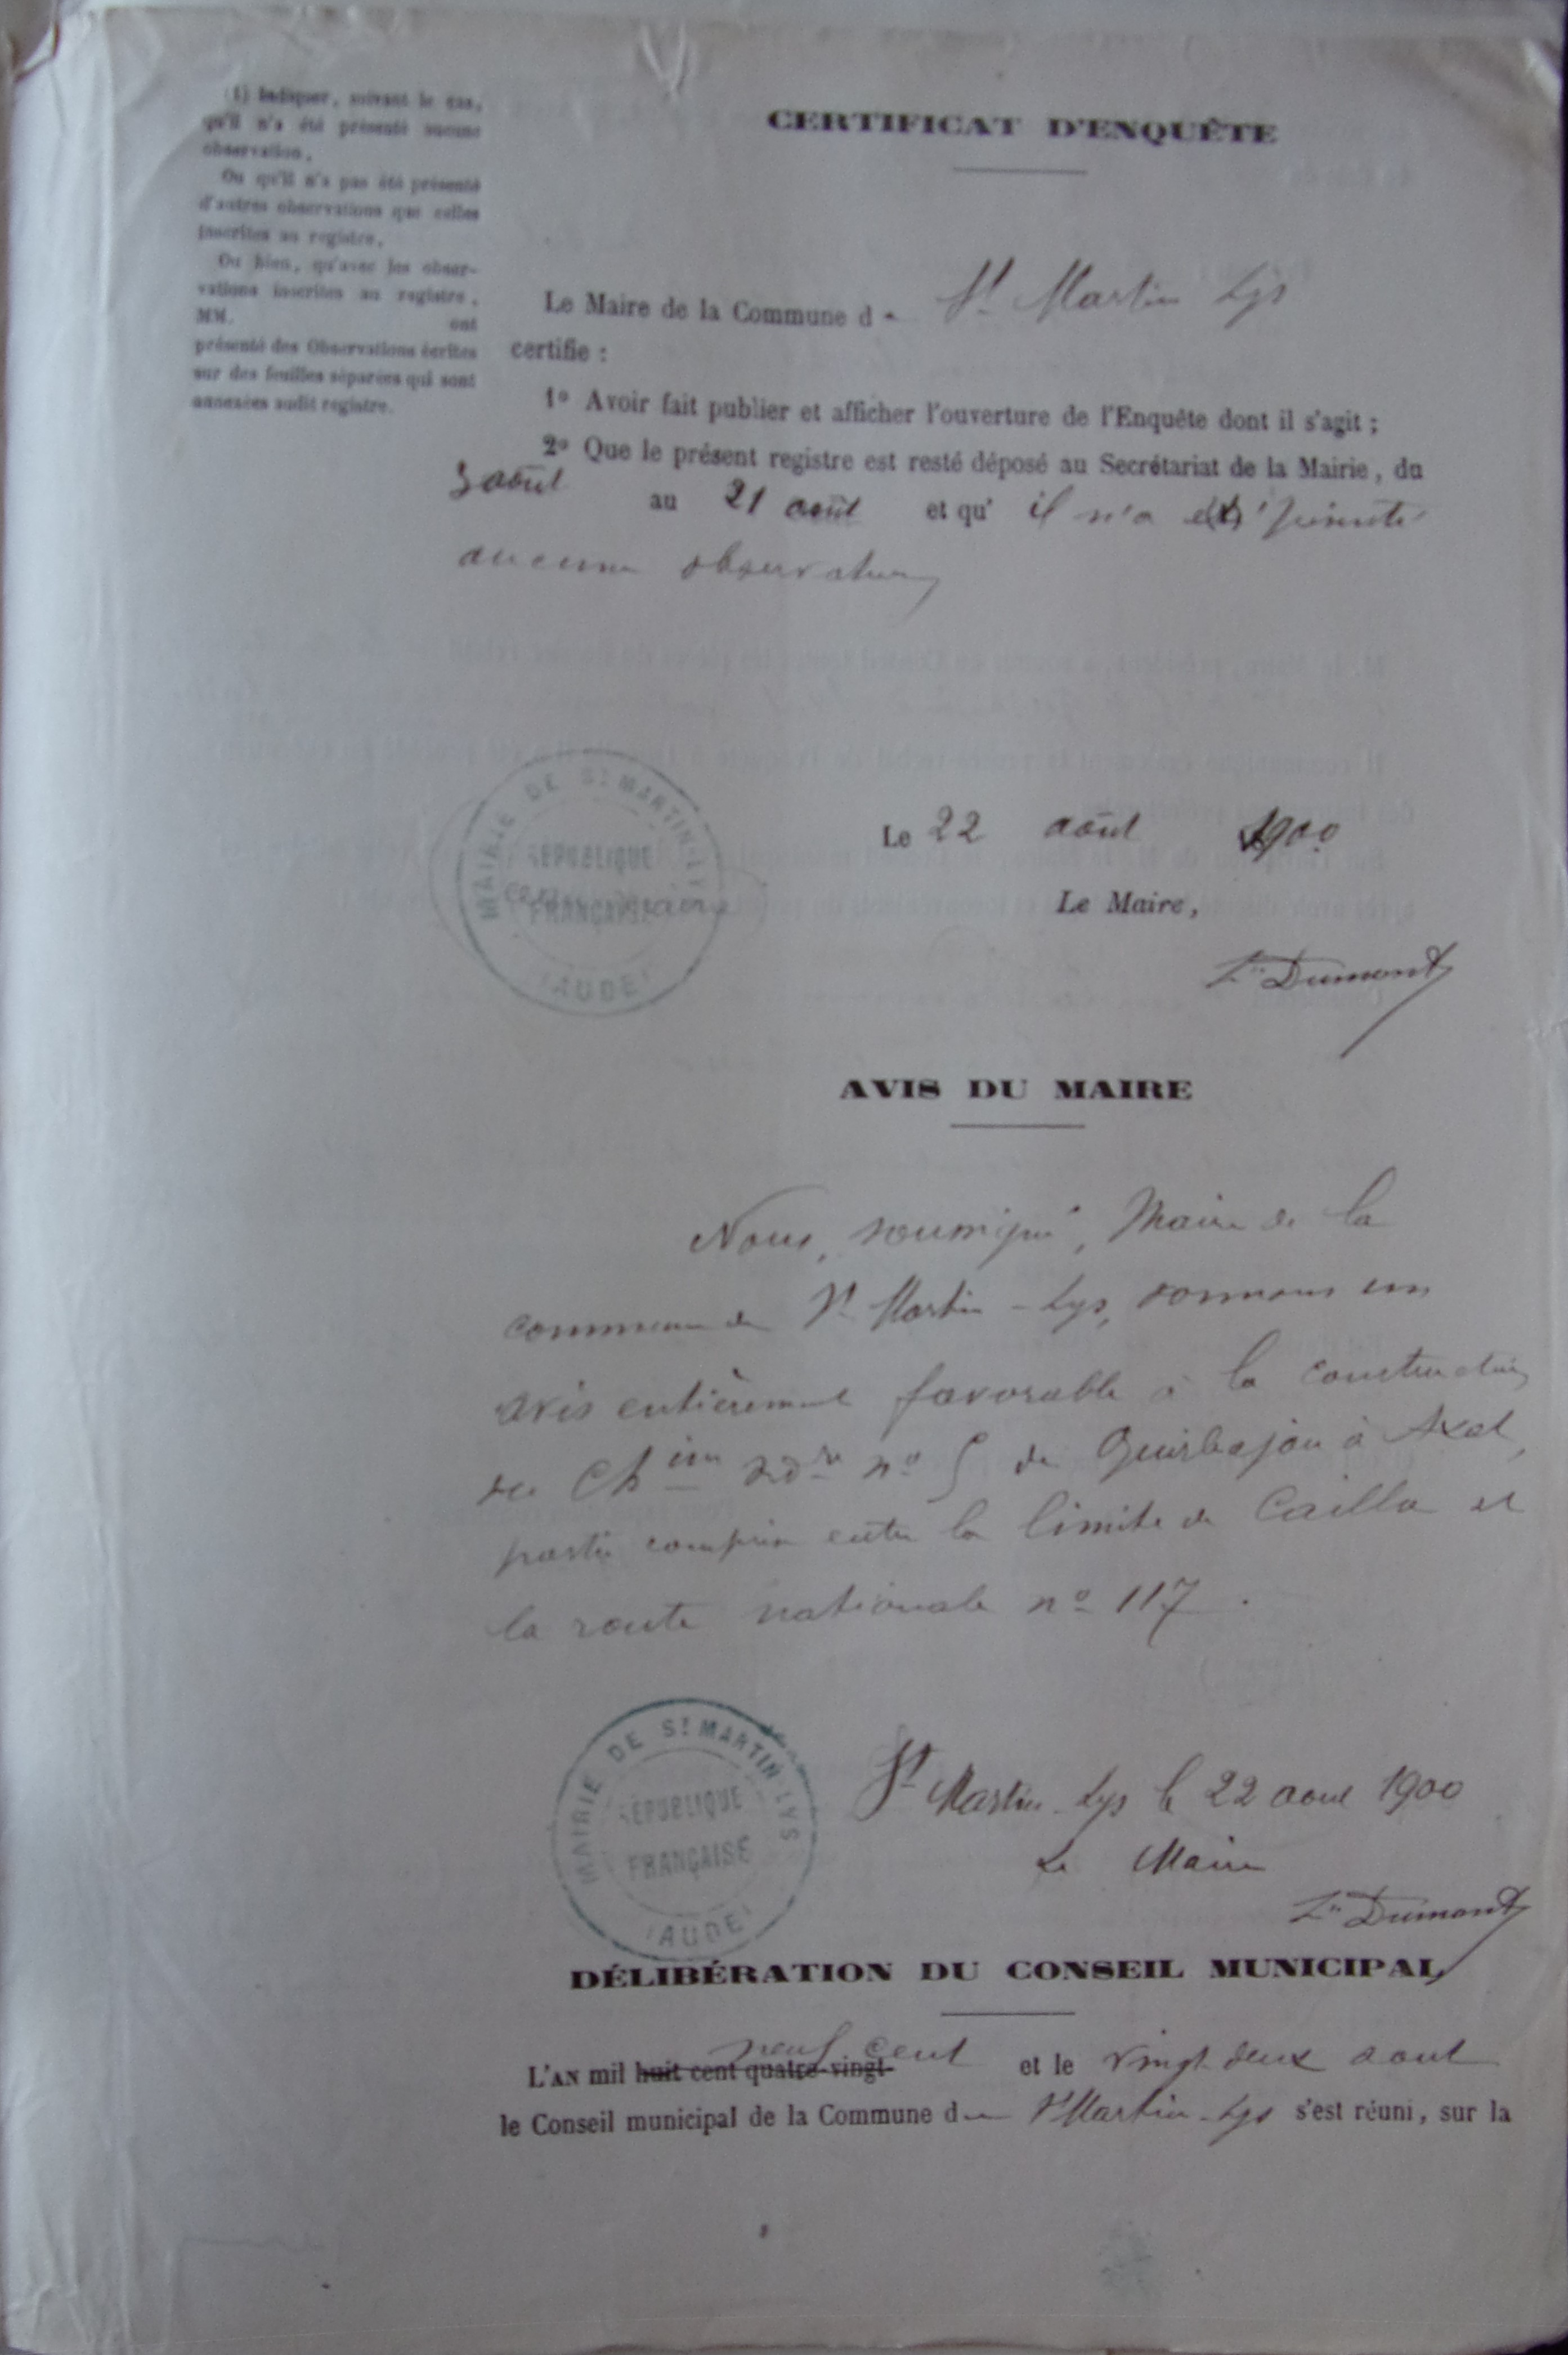 (1) Indiquer, suivant le cas,
qu'il n'a été présenté aucune
observation,
Ou qu'il n'a pas été présenté
d'autres observations que celles
inscrites au registre,
Ou bien, qu'avec les obser-
vations inscrites au registre,
MM. ont
présenté des Observations écrites
sur des feuilles séparées qui sont
annexées audit registre.
CERTIFICAT D'ENQUÊTE
Le Maire de la Commune de St Martin Lys
certifie :
1º Avoir fait publier et afficher l'ouverture de l'Enquête dont il s'agit ;
2º Que le présent registre est resté déposé au Secrétariat de la Mairie, du
août au 21 août et qu' il n'a été présenté
aucune observation
MAIRIE DE St MARTIN-LYS
RÉPUBLIQUE
FRANÇAISE
AUDE
Le 22 août 1900
Le Maire,
Dumont
AVIS DU MAIRE
Nous, soussigné, Maire de la
commune de St Martin-Lys, donnons un
avis entièrement favorable à la construction
du Chin nº 5 de Quirbajou à Axat,
partie comprise entre la limite de Cailla et
la route nationale nº 117.
MAIRIE DE St MARTIN-LYS
RÉPUBLIQUE
FRANÇAISE
AUDE
St Martin-Lys le 22 août 1900
Le Maire
Dumont
DÉLIBÉRATION DU CONSEIL MUNICIPAL
neuf cent
L'AN mil huit cent quatre-vingt et le vingt deux aout
le Conseil municipal de la Commune de St Martin-Lys s'est réuni, sur la